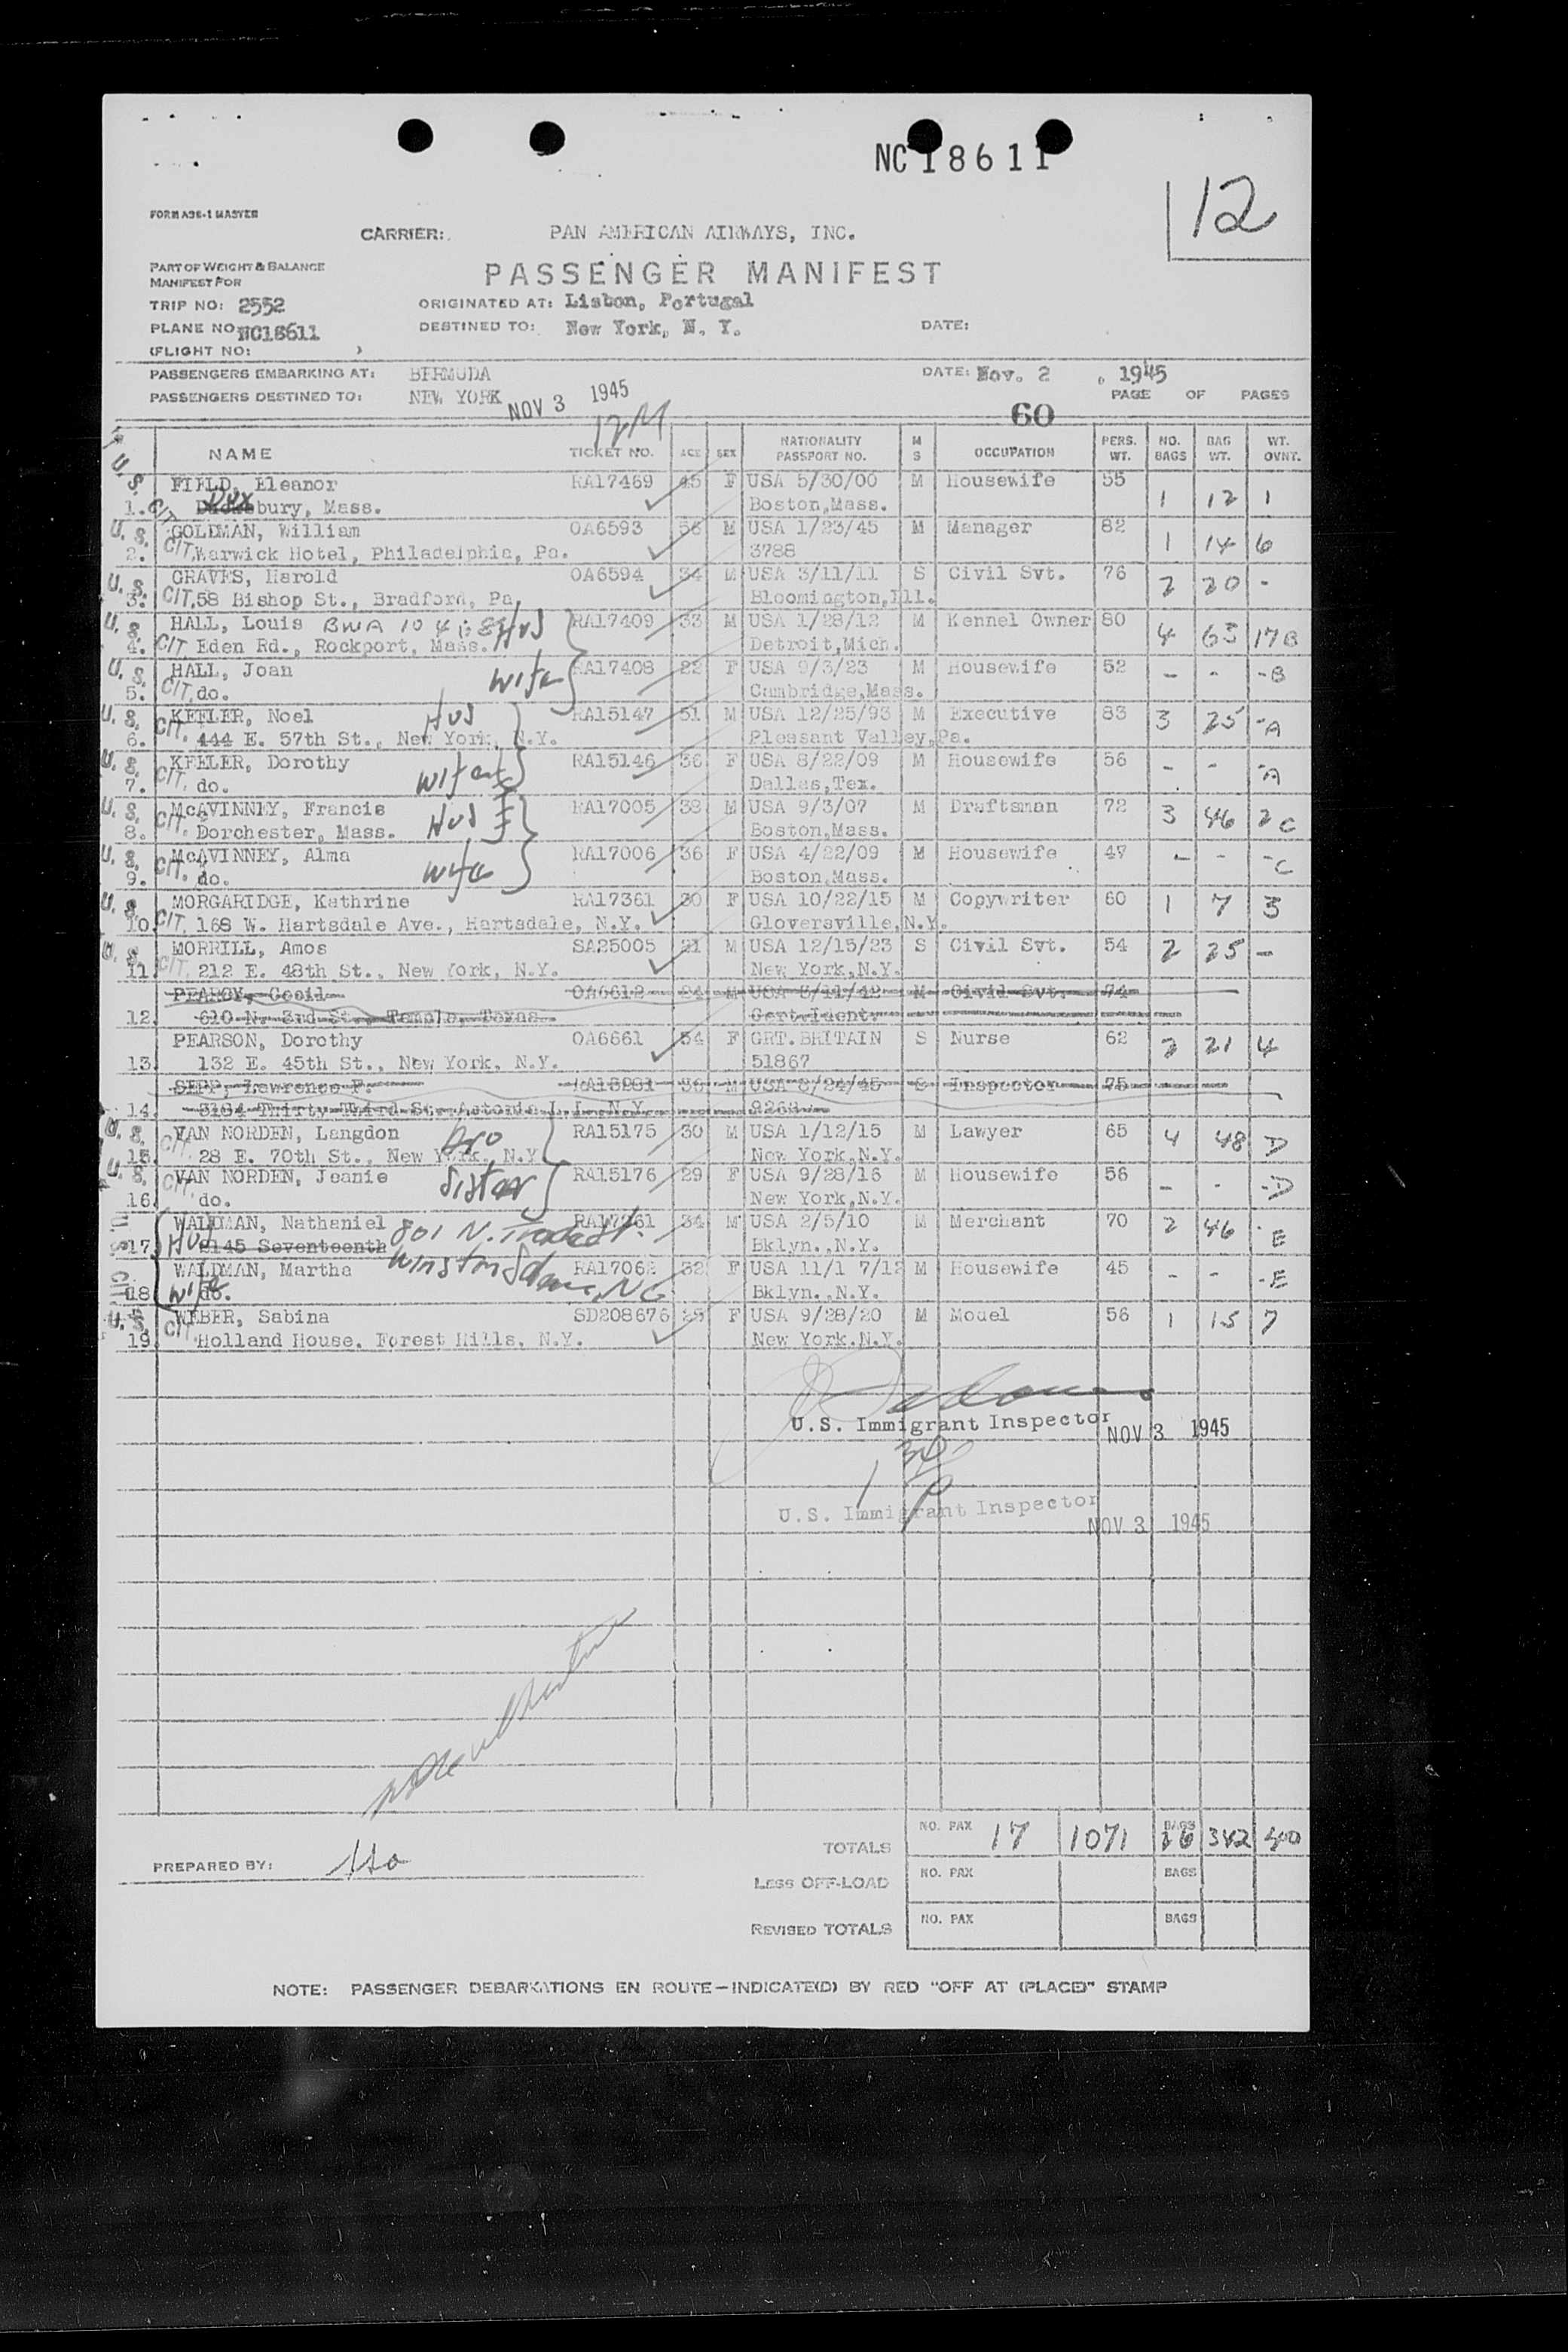 NC18611
12
FORM A36-1 MASTER
CARRIER: PAN AMERICAN AIRWAYS, INC.
PART OF WEIGHT & BALANCE
MANIFEST FOR
PASSENGER MANIFEST
TRIP NO: 2552 ORIGINATED AT: Lisbon, Portugal
PLANE NO: NC18611 DESTINED TO: New York, N. Y. DATE:
(FLIGHT NO: )
PASSENGERS EMBARKING AT: BERMUDA DATE: Nov. 2 , 1945
PASSENGERS DESTINED TO: NEW YORK NOV 3 1945 PAGE OF PAGES
12M 60
NAME TICKET NO. AGE SEX NATIONALITY PASSPORT NO. M S OCCUPATION PERS. WT. NO. BAGS BAG WT. WT. OVNT.
U. S. CIT. FIELD, Eleanor RA17469 45 F USA 5/30/00 M Housewife 55
1. Dux bury, Mass. Boston,Mass. 1 12 1
U. S. GOLDMAN, William OA6593 56 M USA 1/23/45 M Manager 82
2. CIT. Warwick Hotel, Philadelphia, Pa. 3788 1 14 6
U. S. GRAVES, Harold OA6594 34 M USA 3/11/11 S Civil Svt. 76
3. CIT. 58 Bishop St., Bradford, Pa. Bloomington,Ill. 2 20 -
U. S. HALL, Louis Hus RA17409 33 M USA 1/28/12 M Kennel Owner 80
4. CIT. Eden Rd., Rockport, Mass. Detroit,Mich. 4 63 17B
U. S. HALL, Joan wife RA17408 22 F USA 9/3/23 M Housewife 52
5. CIT. do. Cambridge,Mass. - - -B
U. S. KEELER, Noel Hus RA15147 51 M USA 12/25/93 M Executive 83
6. CIT. 444 E. 57th St., New York, N.Y. Pleasant Valley,Pa. 3 25 -A
U. S. KEELER, Dorothy RA15146 36 F USA 8/22/09 M Housewife 56
7. CIT. do. wife Dallas,Tex. - - -A
U. S. McAVINNEY, Francis RA17005 38 M USA 9/3/07 M Draftsman 72
8. CIT. Dorchester, Mass. Hus Boston,Mass. 3 46 2C
U. S. McAVINNEY, Alma RA17006 36 F USA 4/22/09 M Housewife 47
9. CIT. do. wife Boston,Mass. - - -C
U. S. MORGARIDGE, Kathrine RA17361 30 F USA 10/22/15 M Copywriter 60
10. CIT. 168 W. Hartsdale Ave., Hartsdale, N.Y. Gloversville,N.Y. 1 7 3
U. S. MORRILL, Amos SA25005 21 M USA 12/15/23 S Civil Svt. 54
11. CIT. 212 E. 48th St., New York, N.Y. New York,N.Y. 2 25 -
PEARCY, Cecil OA6612 24 M USA M Civil Svt. 74
12. 610 N. 3rd St., Temple, Texas Cert.Ident.
PEARSON, Dorothy OA6661 54 F GRT.BRITAIN S Nurse 62
13. 132 E. 45th St., New York, N.Y. 51867 2 21 4
SEPP, Lawrence F. 36 M USA 8/24/45 S Inspector 75
14. Thirty Third St. Astoria L.I. N.Y.
U. S. VAN NORDEN, Langdon Bro RA15175 30 M USA 1/12/15 M Lawyer 65
15. CIT. 28 E. 70th St., New York, N.Y. New York,N.Y. 4 48 D
U. S. VAN NORDEN, Jeanie Sister RA15176 29 F USA 9/28/16 M Housewife 56
16. CIT. do. New York,N.Y. - - -D
U. S. CIT. WALDMAN, Nathaniel 801 N. RA17261 34 M USA 2/5/10 M Merchant 70
17. Hus 2145 Seventeenth Bklyn.,N.Y. 2 46 -E
WALDMAN, Martha Winston Salem, NC RA17062 32 F USA 11/1 7/12 M Housewife 45
18. wife do. Bklyn.,N.Y. - - -E
U. S. WEBER, Sabina SD208676 25 F USA 9/28/20 M Model 56
19. CIT. Holland House, Forest Hills, N.Y. New York.N.Y. 1 15 7
U.S. Immigrant Inspector NOV 3 1945
U.S. Immigrant Inspector NOV 3 1945
TOTALS NO. PAX 17 1071 BAGS 26 342 40
PREPARED BY:
LESS OFF-LOAD NO. PAX BAGS
REVISED TOTALS NO. PAX BAGS
NOTE: PASSENGER DEBARKATIONS EN ROUTE—INDICATE(D) BY RED "OFF AT (PLACE)" STAMP